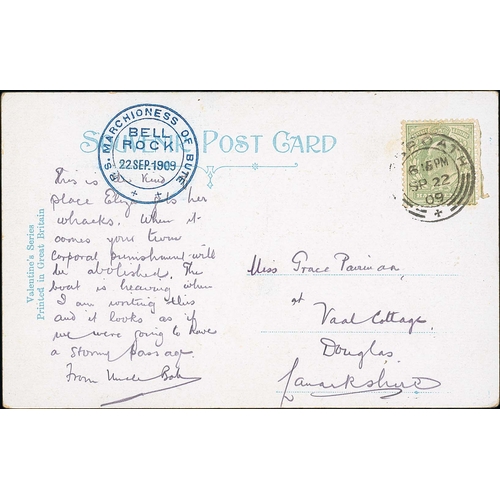 P.S. MARCHIONESS OF BUTE
BELL
ROCK
22 SEP. 1909
SOUVENIR POST CARD
ARBROATH
6 15 PM
SP 22
09
Valentine's Series
Printed in Great Britain
This is the kind
place Eliza gets her
whacks. When it
comes your turn
corporal punishment will
be abolished. The
boat is heaving when
I am writing this
and it looks as if
we were going to have
a stormy passage
From Uncle Bob
Miss Grace Pairman,
at
Vaal Cottage,
Douglas,
Lanarkshire